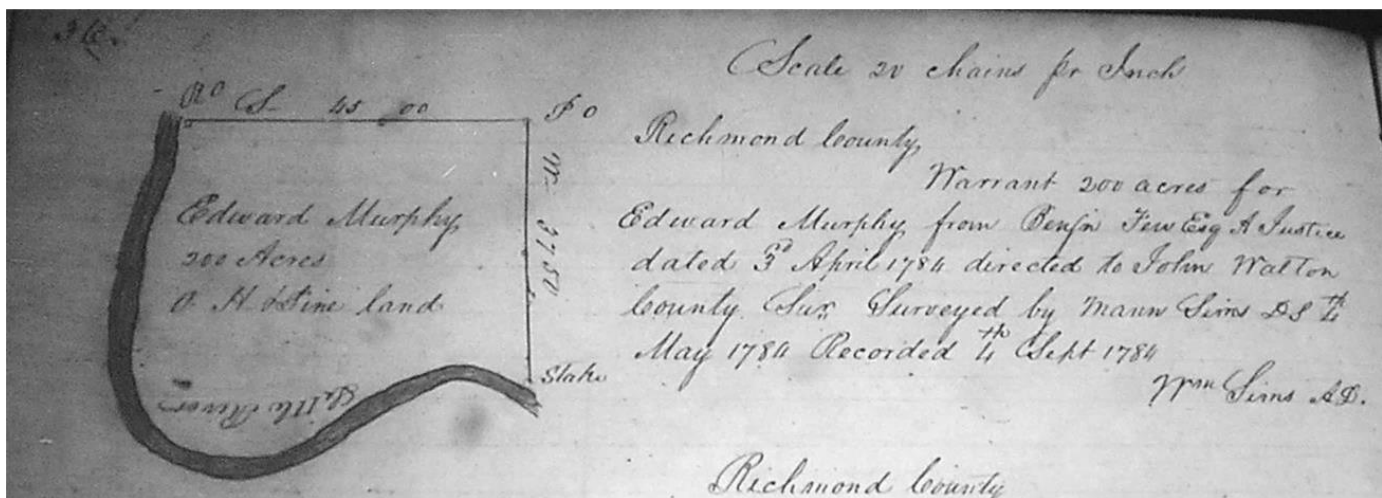 36.
Scale 20 chains pr Inch
RO S 45 00 PO
W 37 50
Edward Murphy
200 Acres
O. H. & Pine land
Little River
Stake
Richmond County
Warrant 200 acres for
Edward Murphy from Benjn Few Esq A Justice
dated 3d April 1784 directed to John Walton
County Sur. Surveyed by Mann Sims DS 4th
May 1784 Recorded 4th Sept 1784
Wm Sims AD.
Richmond County